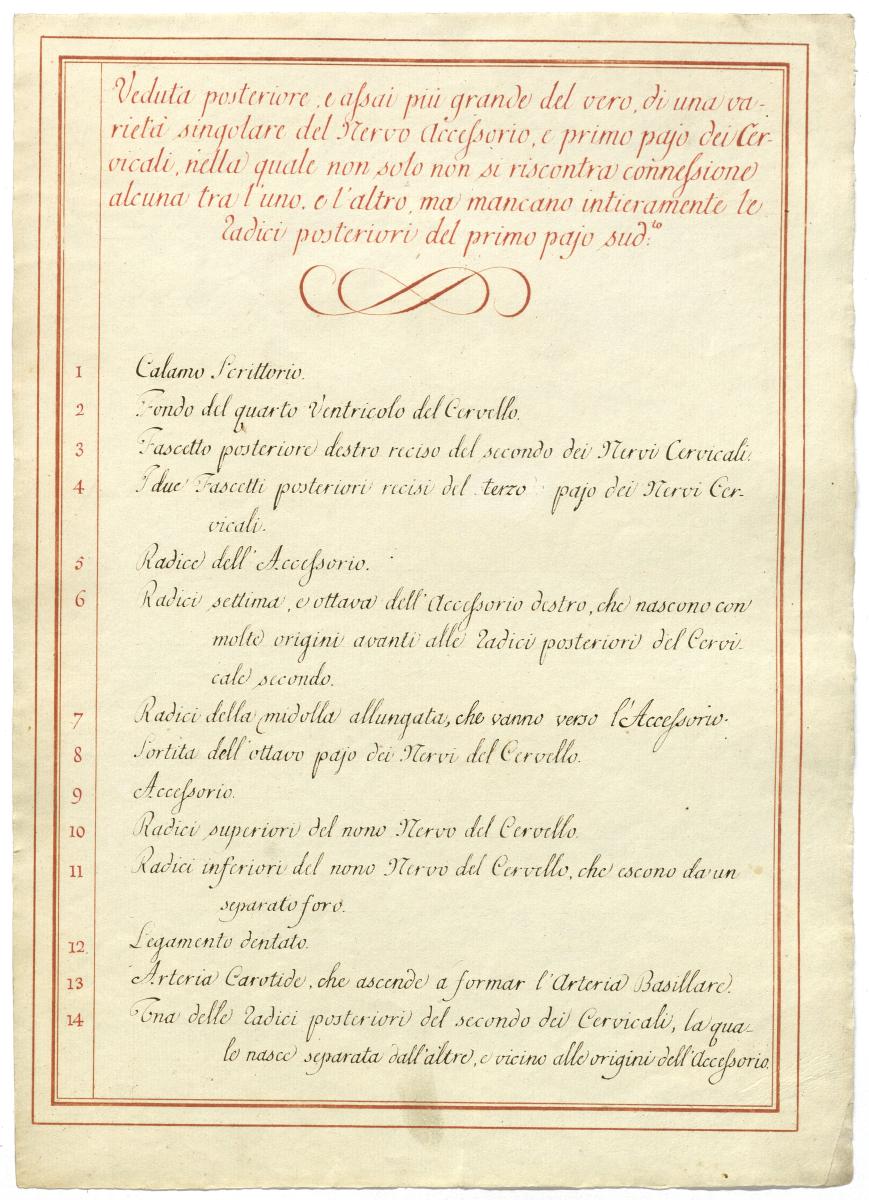 Veduta posteriore, e assai più grande del vero, di una va-
rietà singolare del Nervo Accessorio, e primo pajo dei Cer-
vicali, nella quale non solo non si riscontra connessione
alcuna tra l'uno, e l'altro, ma mancano intieramente le
radici posteriori del primo pajo sud.to
1 Calamo Scrittorio.
2 Fondo del quarto Ventricolo del Cervello.
3 Fascetto posteriore destro reciso del secondo dei Nervi Cervicali.
4 I due Fascetti posteriori recisi del terzo pajo dei Nervi Cer-
vicali.
5 Radice dell'Accessorio.
6 Radici settima, e ottava dell'Accessorio destro, che nascono con
molte origini avanti alle radici posteriori del Cervi-
cale secondo.
7 Radici della midolla allungata, che vanno verso l'Accessorio.
8 Sortita dell'ottavo pajo dei Nervi del Cervello.
9 Accessorio.
10 Radici superiori del nono Nervo del Cervello.
11 Radici inferiori del nono Nervo del Cervello, che escono da un
separato foro.
12 Legamento dentato.
13 Arteria Carotide, che ascende a formar l'Arteria Basillare.
14 Una delle radici posteriori del secondo dei Cervicali, la qua-
le nasce separata dall'altre, e vicino alle origini dell'Accessorio.